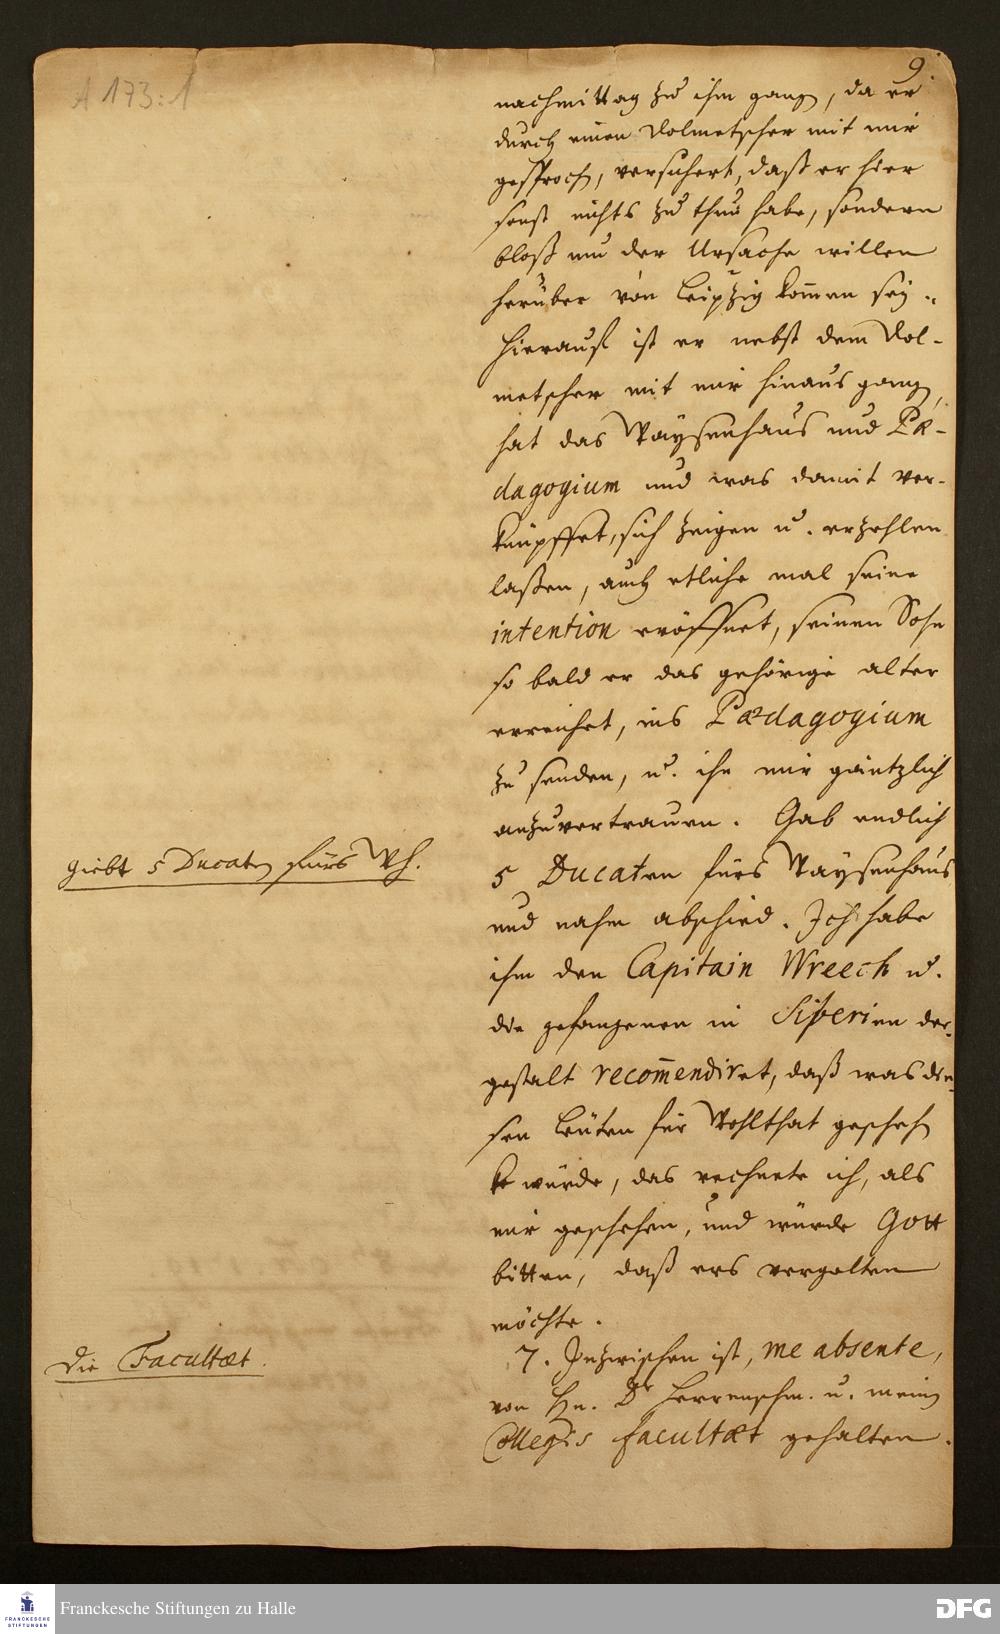 A 173:1
9.
nachmittag zu ihm gang, da er
durch einen Dolmetscher mit mir
gesproch, versichert, daß er hier
sonst nichts zu thun habe, sondern
bloß um der Ursache willen
herüber von Leipzig kom̄en sey.
Hierauf ist er nebst dem Dol-
metscher mit mir hinaus gang,
hat das Waysenhaus und Pæ-
dagogium und was damit ver-
knüpffet, sich zeigen u. erzehlen
laßen, auch etliche mal seine
intention eröffnet, seinen Sohn
so bald er das gehörige alter
erreichet, ins Pædagogium
zu senden, u. ihn mir gäntzlich
anzuvertrauen. Gab endlich
giebt 5 Ducaten fürs Wh.
5 Ducaten fürs Waysenhaus
und nahm abschied. Ich habe
ihm den Capitain Wreech u.
die gefangenen in Siberien der-
gestalt recom̄endiret, daß was die-
sen Leuten für Wohlthat gescheh
würde, das rechnete ich, als
mir geschehen, und würde Gott
bitten, daß ers vergelten
möchte.
Die Facultæt.
7. Inzwischen ist, me absente,
von Hn. Dr Herrenschm. u. mein
Collegis Facultæt gehalten.
Franckesche Stiftungen zu Halle
FRANCKESCHE
STIFTUNGEN
DFG